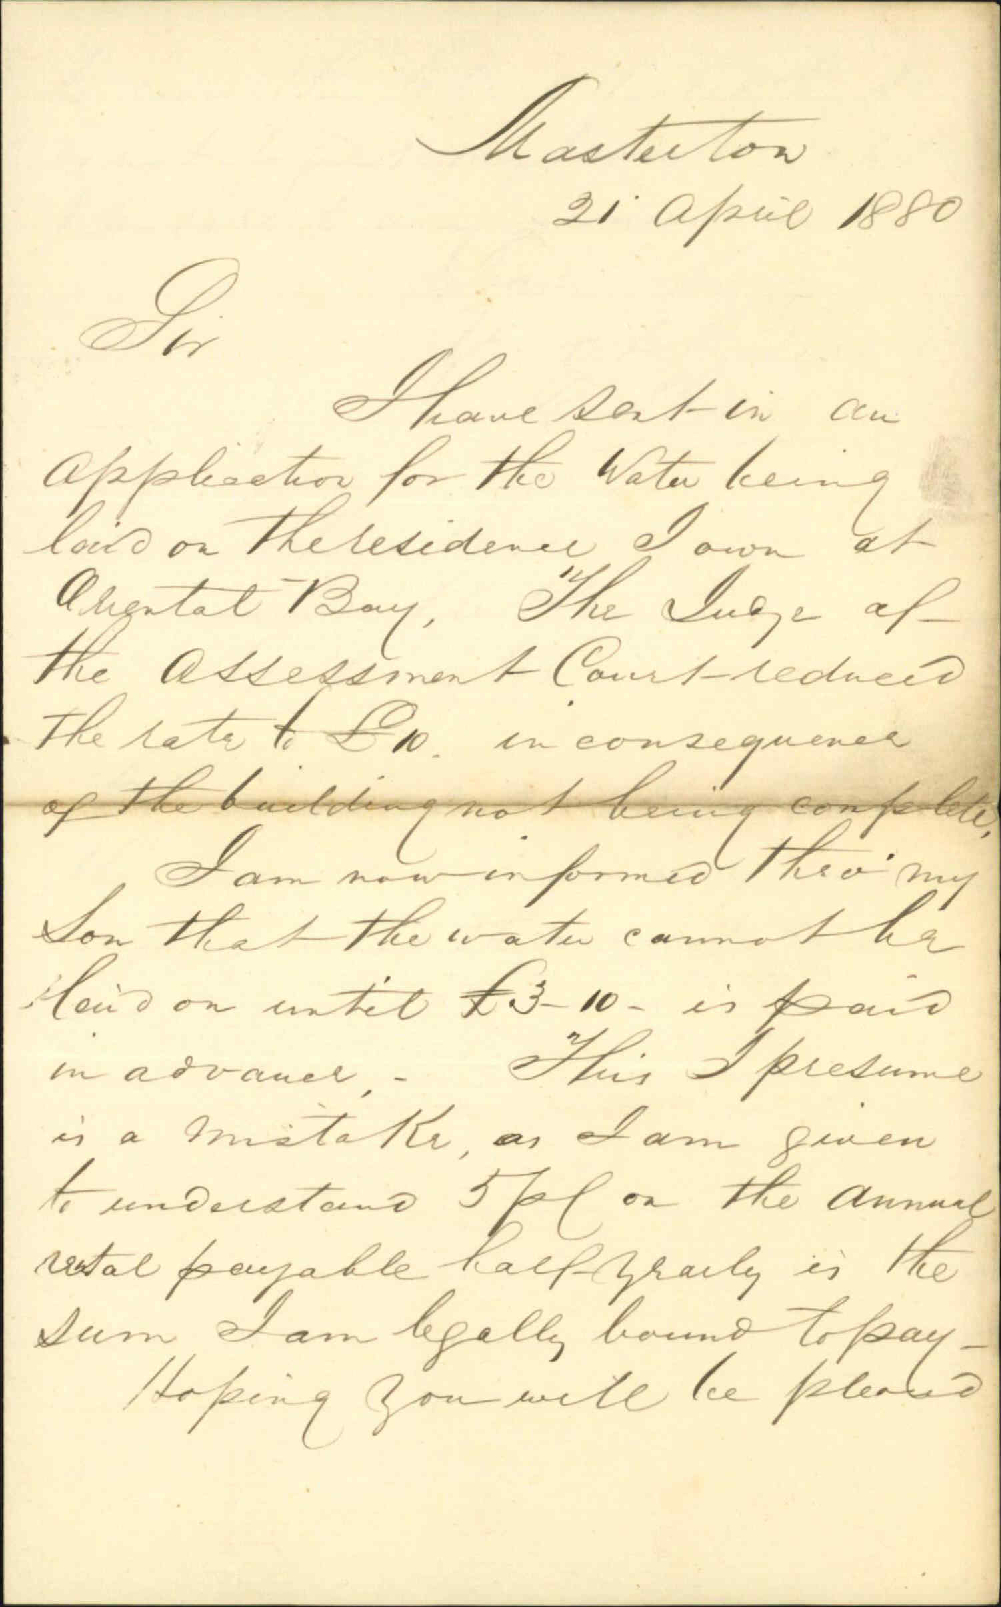 Masterton
21 April 1880
Sir
I have sent in an
application for the Water being
laid on the residence I own at
Oriental Bay, The Judge of
the Assessment Court reduced
the rate to £10. in consequence
of the building not being complete,
I am now informed thro' my
Son that the water cannot be
laid on until £3-10- is paid
in advance, - This I presume
is a mistake, as I am given
to understand 5 pC on the annual
rental payable half yearly is the
sum I am legally bound to pay -
Hoping you will be pleased